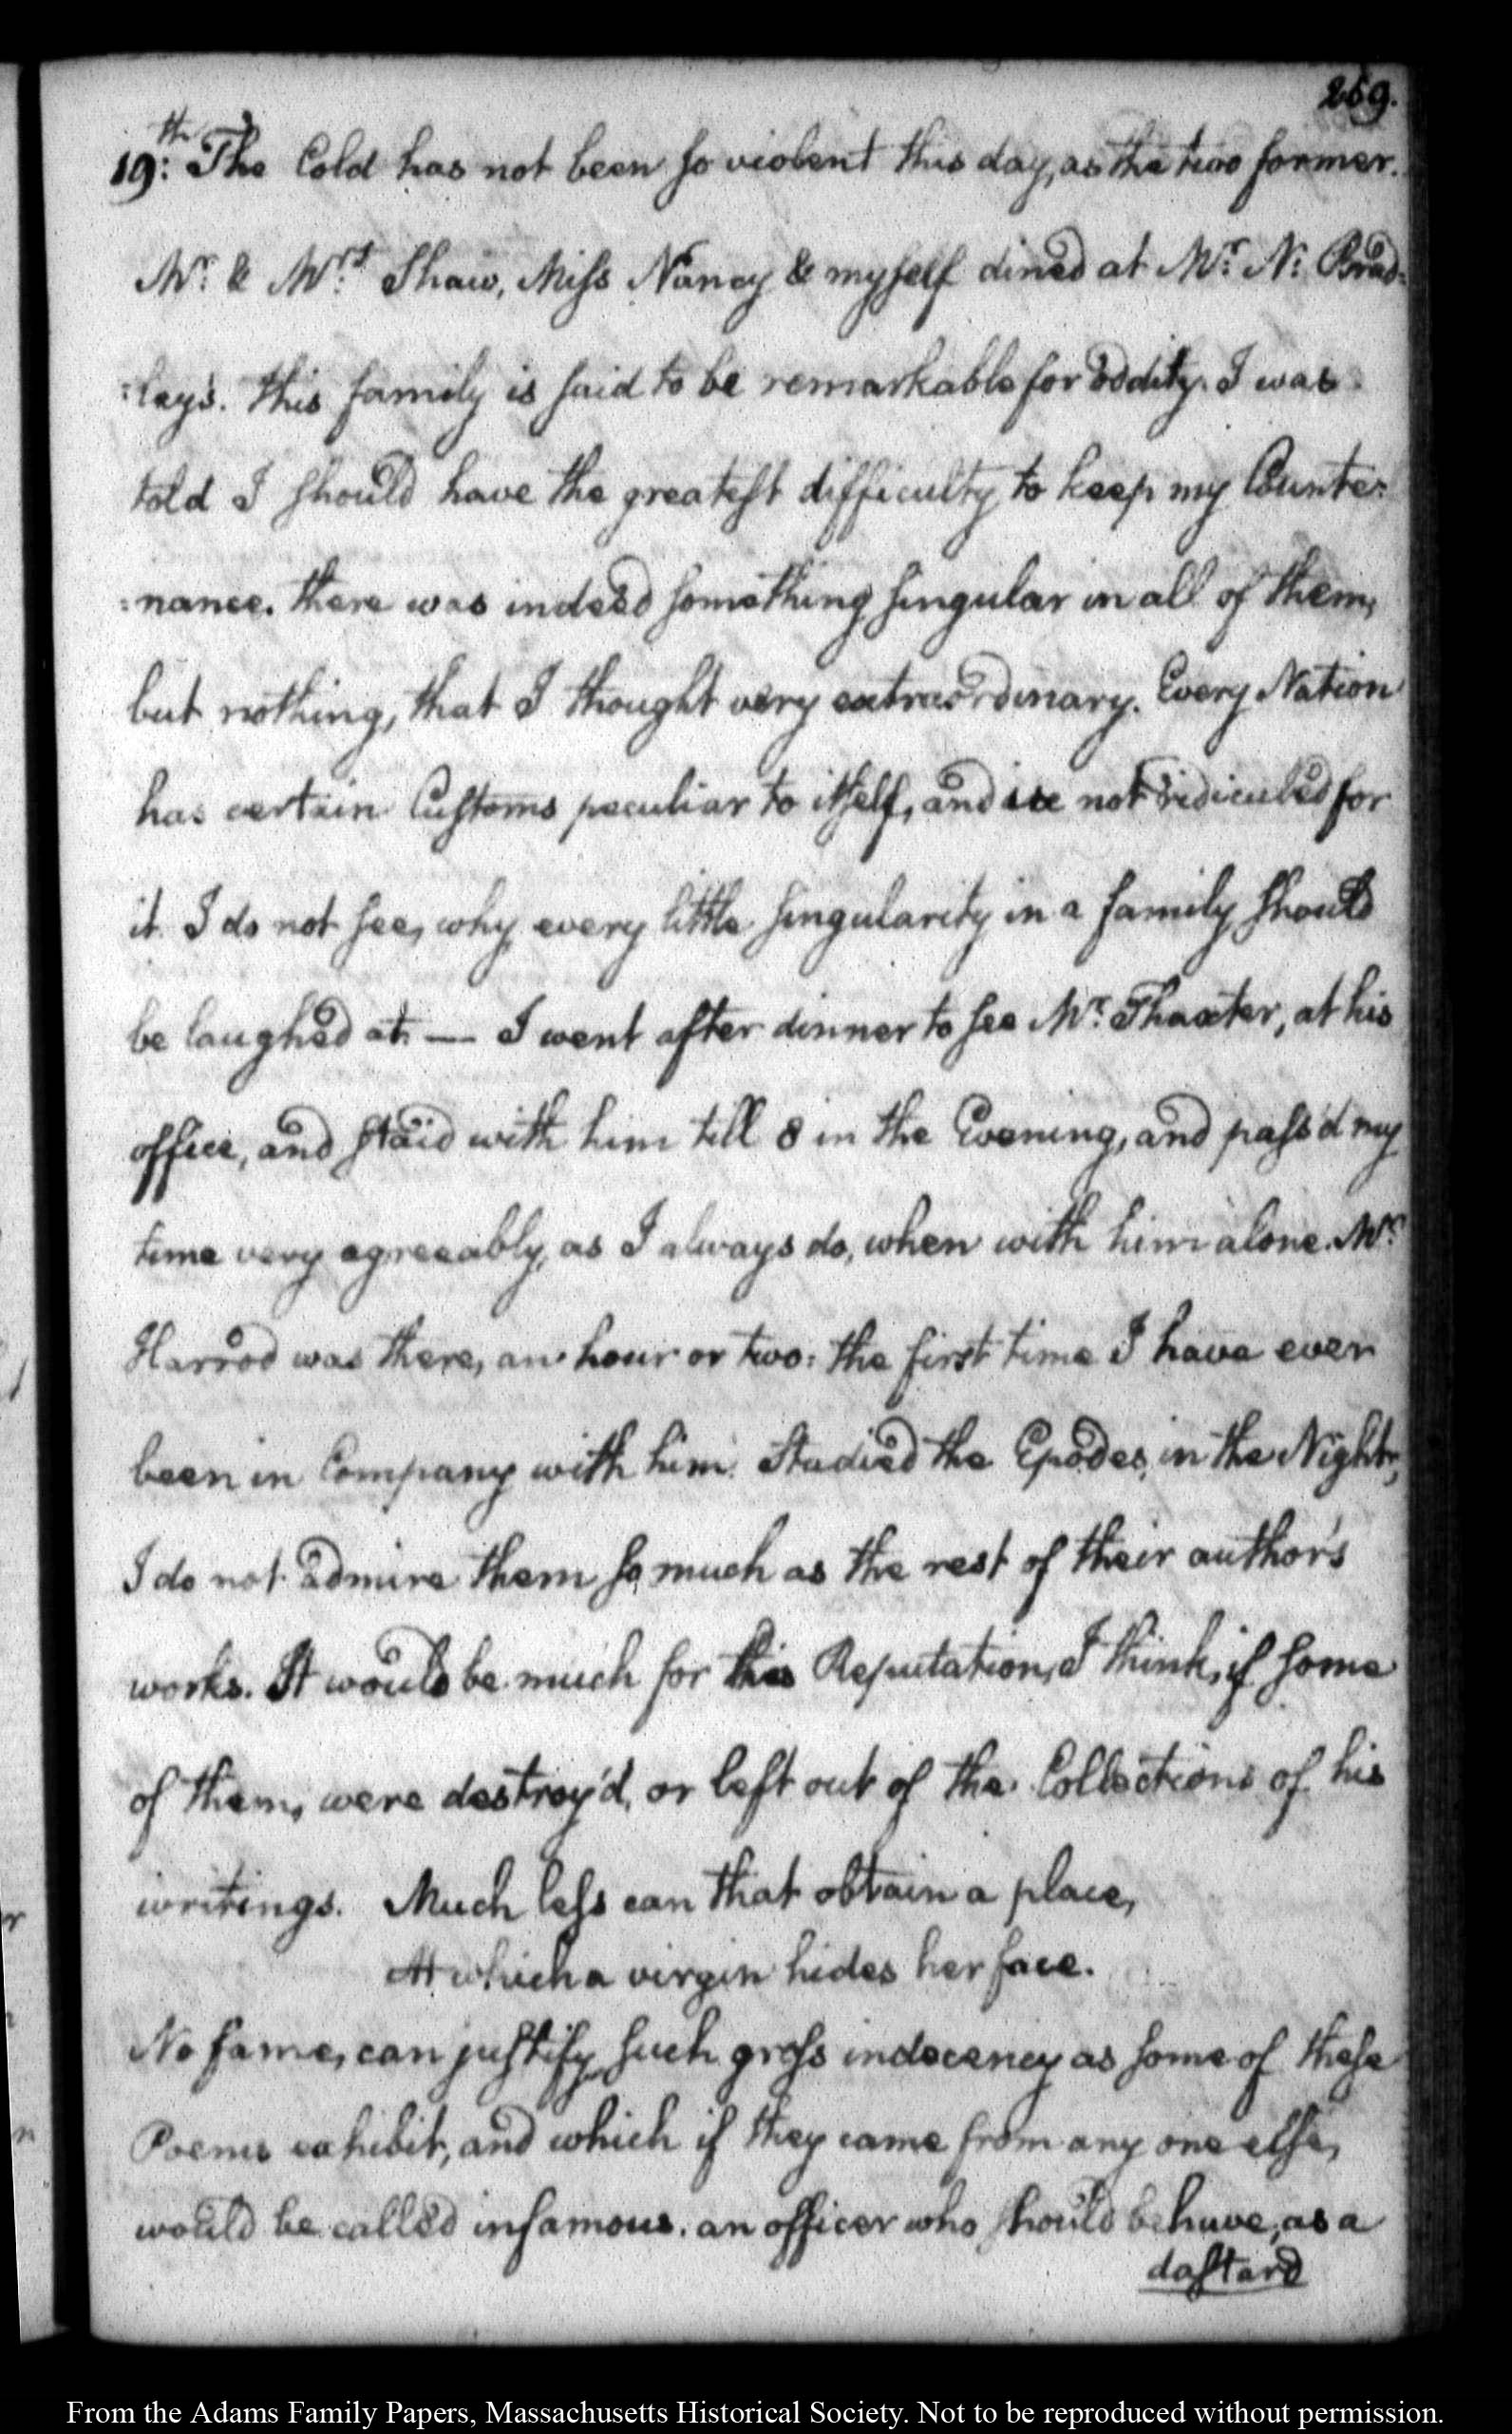 259.
19:th The Cold has not been so violent this day, as the two former.
Mr. & Mrs. Shaw, Miss Nancy & myself dined at Mr. N: Brad-
:ley's. This family is said to be remarkable for oddity. I was
told I should have the greatest difficulty to keep my Counte:
:nance. there was indeed something singular in all of them,
but nothing, that I thought very extraordinary. Every Nation
has certain Customs peculiar to itself, and is not ridiculed for
it. I do not see, why every little singularity in a family should
be laughed at. — I went after dinner to see Mr. Thaxter, at his
office, and staid with him till 8 in the Evening, and pass'd my
time very agreeably, as I always do, when with him alone. Mr.
Harrod was there, an hour or two: the first time I have ever
been in Company with him. Studied the Epodes, in the Night,
I do not admire them so much as the rest of their author's
works. It would be much for his Reputation, I think, if some
of them, were destroy'd, or left out of the Collections of his
writings. Much less can that obtain a place,
At which a virgin hides her face.
No fame, can justify such gross indecency as some of these
Poems exhibit, and which if they came from any one else,
would be called infamous. an officer who should behave, as a
dastard
From the Adams Family Papers, Massachusetts Historical Society. Not to be reproduced without permission.